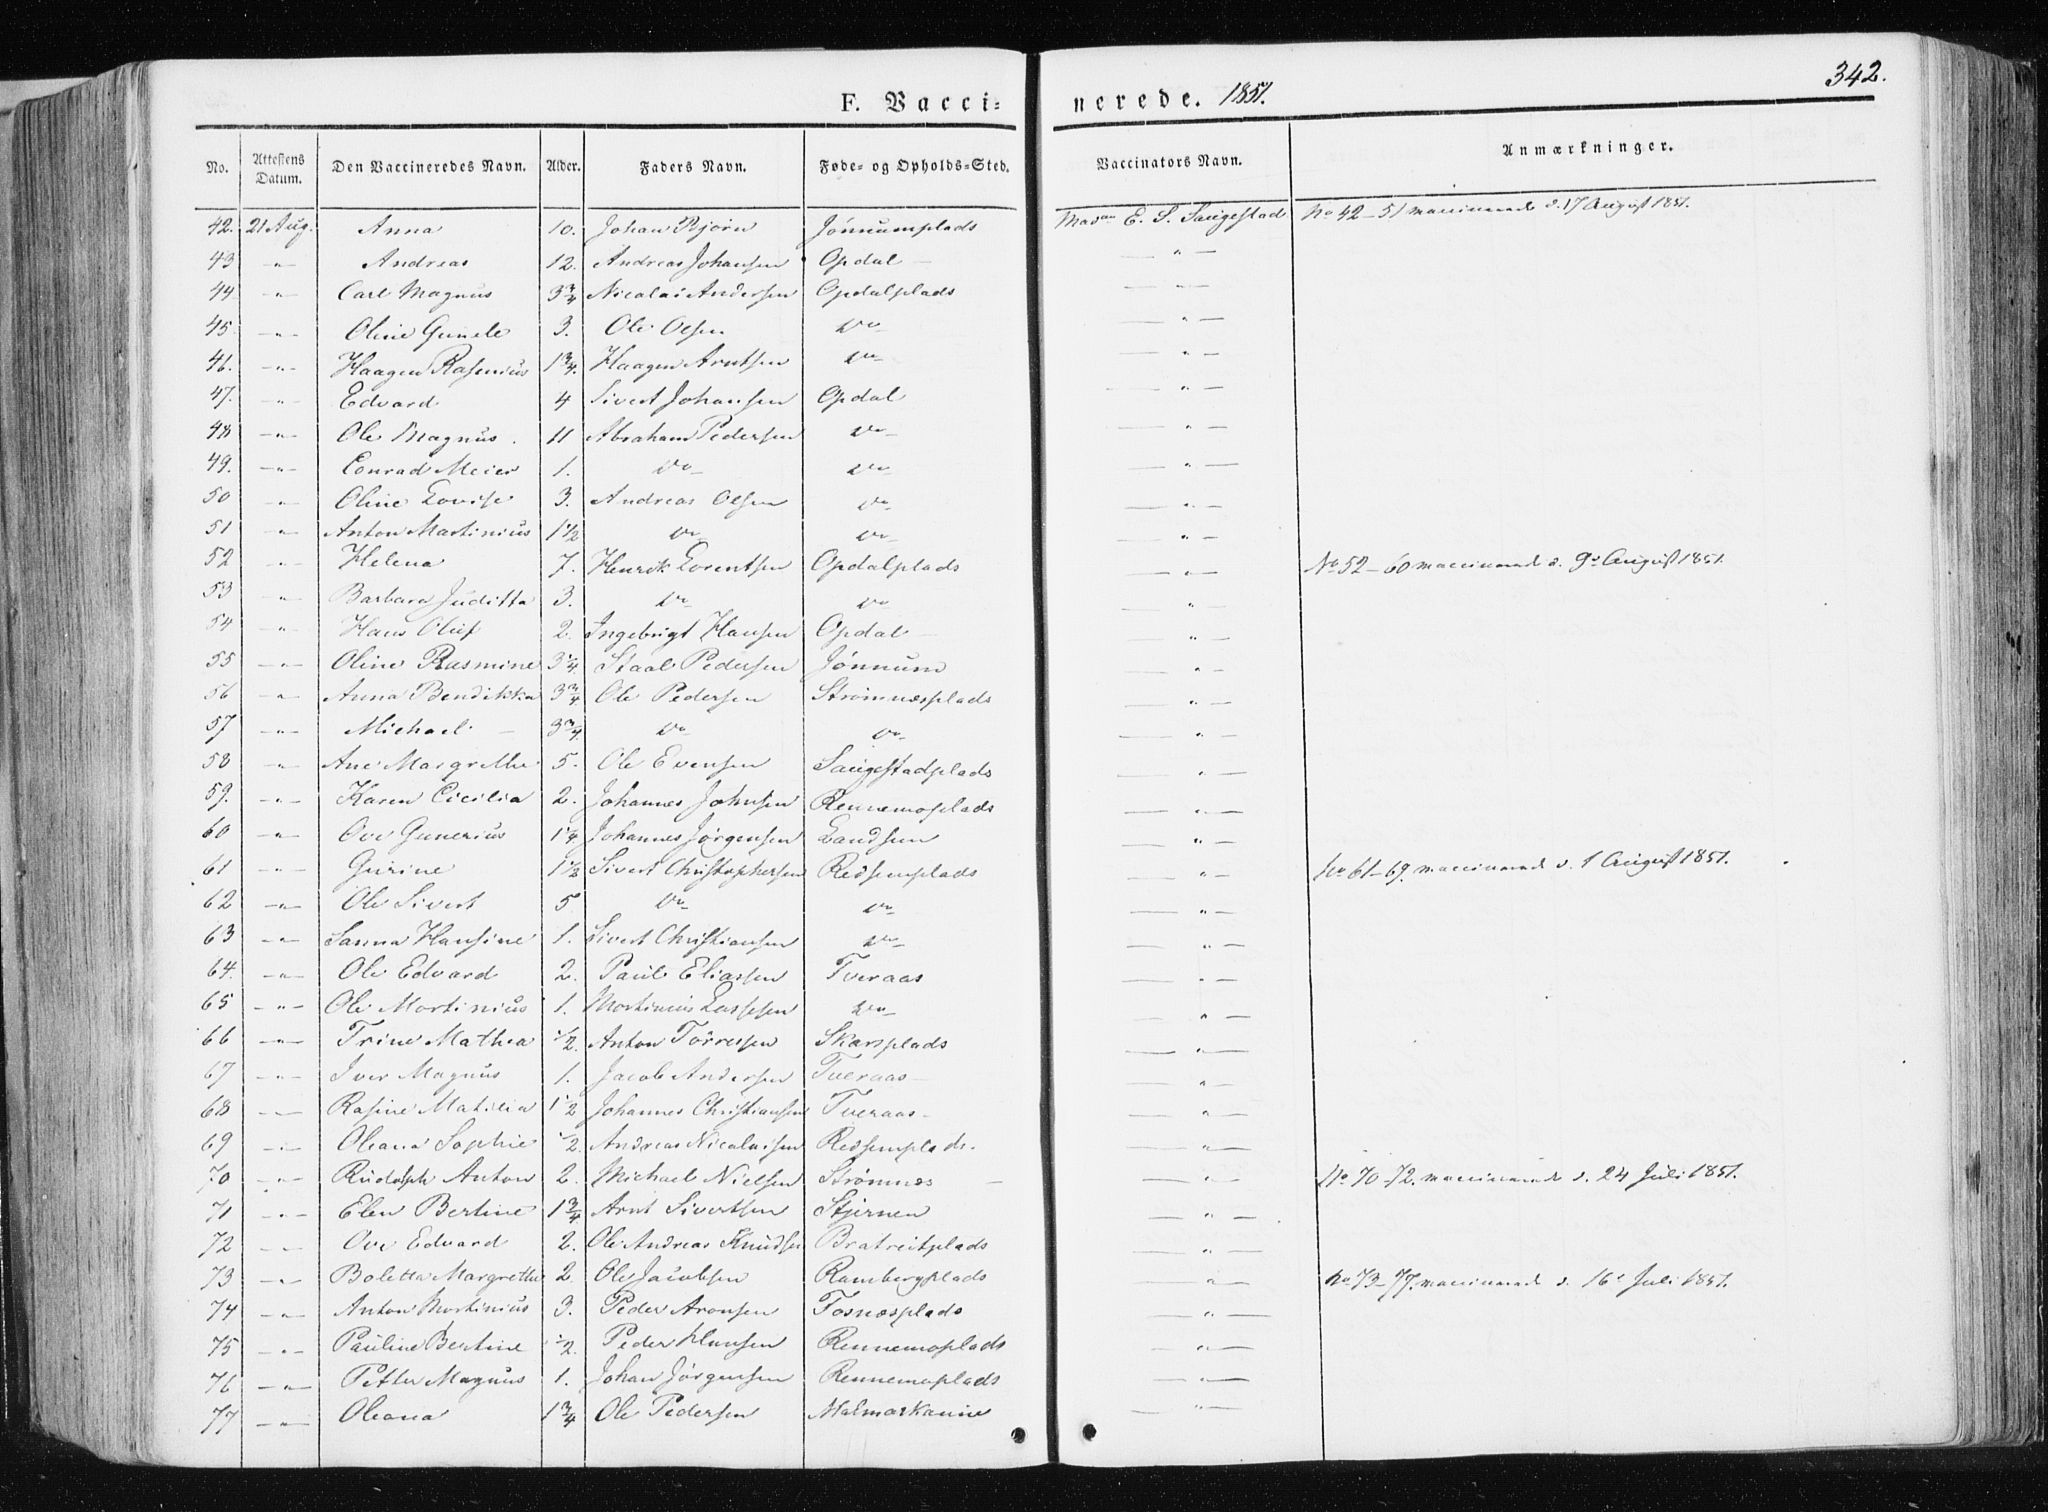 342.
F. Vacci=nerede. 1851.
No. | Attestens Datum. | Den Vaccineredes Navn. | Alder. | Faders Navn. | Føde= og Opholds=Sted. | Vaccinators Navn. | Anmærkninger.
42. 21 Aug. Anna 10. Johan Bjørn Jønnumplads E. S. Saugestad No 42–51 vaccinerede d. 17 August 1851.
43 –"– Andreas 12. Andreas Johansen Opdal –"–
44 –"– Carl Magnus 3 3/4 Nicolai Andersen Opdalplads –"–
45 –"– Oline Gunele 3. Ole Olsen do –"–
46. –"– Haagen Rasmus 1 3/4. Haagen Arntsen do –"–
47. –"– Edvard 4 Sivert Johansen Opdal –"–
48 –"– Ole Magnus. 11 Abraham Pedersen do –"–
49. –"– Conrad Meier 1. do do –"–
50 –"– Oline Lovise 3. Andreas Olsen do –"–
51 –"– Anton Martinius 1 1/2 do do –"–
52 –"– Helena 7. Henrik Lorentsen Opdalplads –"– No 52–60 vaccinerede d. 9d August 1851
53 –"– Barbara Juditta 3. do do –"–
54 –"– Hans Oluf 2. Ingebrigt Hansen Opdal –"–
55 –"– Oline Rasmine 3 1/4 Staal Pedersen Jønnum –"–
56 –"– Anna Bendikka 3 3/4 Ole Pedersen Strømnesplads –"–
57 –"– Michael 3 3/4 do do –"–
58 –"– Ane Margrethe 5. Ole Evensen Saugestadplads –"–
59. –"– Karen Cicilia 2. Johannes Johnsen Rennemoplads –"–
60 –"– Ove Gunerius 1 1/4 Johannes Jørgensen Landsem –"–
61 –"– Gurine 1 1/2 Sivert Christophersen Redsemplads –"– No 61–69. vaccinerede d. 1 August 1851.
62 –"– Ole Sivert 5 do do –"–
63 –"– Sanna Hansine 1. Sivert Christiansen do –"–
64. –"– Ole Edvard 2. Paul Eliassen Tveraas –"–
65 –"– Ole Mortinius 1. Mortinius Lassesen do –"–
66 –"– Trine Mathea 1/2. Anton Tørresen Skarsplads –"–
67 –"– Iver Magnus 1. Jacob Andersen Tveraas –"–
68 –"– Rasine Matilia 1 1/2 Johannes Christiansen Tveraas –"–
69 –"– Oleana Sophie 1/2. Andreas Nicolaisen Redsemplads. –"–
70 –"– Rudolph Anton 2. Michael Nielsen Strømnes –"– No 70–72. vaccinerede d. 24 Juli 1851.
71 –"– Elen Bertine 1 3/4 Arnt Sivertsen Stjernen –"–
72 –"– Ove Edvard 2. Ole Andreas Knudsen Bratreitplads –"–
73 –"– Boletta Margrethe 2. Ole Jacobsen Rambergplads –"– No 73–77. vaccinerede d. 16d Juli 1851.
74 –"– Anton Mortinius 3. Peder Aronsen Fosnæsplads –"–
75 –"– Pauline Bertine 1/2. Peder Hansen Rennemoplads –"–
76 –"– Petter Magnus 1. Johan Jørgensen Rennemoplads –"–
77 –"– Oleana 1 3/4 Ole Pedersen –"–